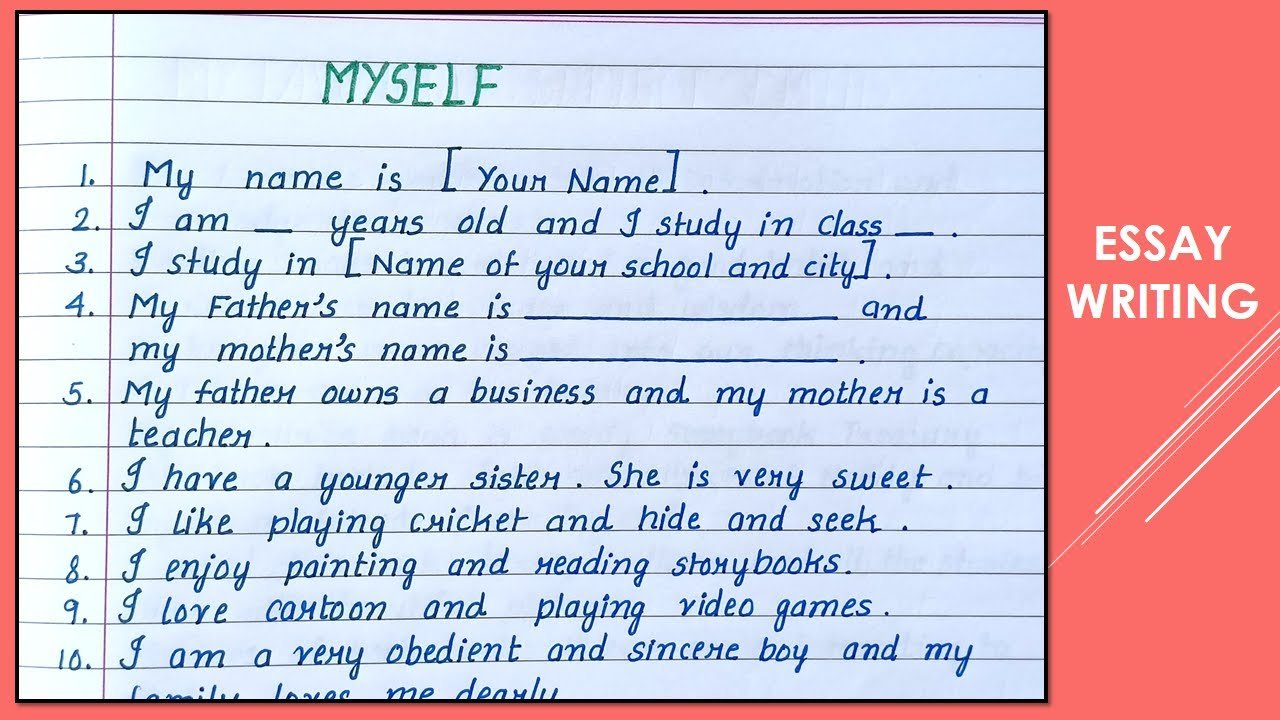 MYSELF
1. My name is [Your Name].
2. I am __ years old and I study in Class __.
3. I study in [Name of your school and city].
4. My Father's name is ______________ and
my mother's name is ______________.
5. My father owns a business and my mother is a
teacher.
6. I have a younger sister. She is very sweet.
7. I like playing cricket and hide and seek.
8. I enjoy painting and reading storybooks.
9. I love cartoon and playing video games.
10. I am a very obedient and sincere boy and my
family loves me dearly
ESSAY
WRITING